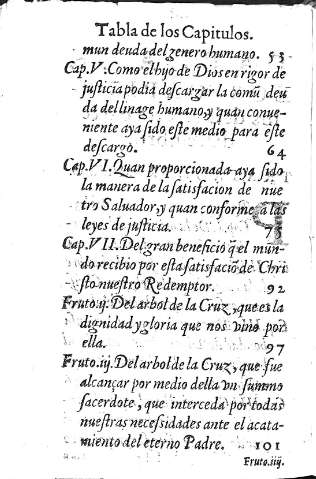 Tabla de los Capitulos.
mun deuda del genero humano. 53
Cap. V. Como el hijo de Dios en rigor de
justicia podia descargar la comũ deu
da del linage humano, y quan conue-
niente aya sido este medio para este
descargo. 64
Cap. VI. Quan proporcionada aya sido
la manera de la satisfacion de nue
stro Saluador, y quan conforme a las
leyes de justicia.
Cap. VII. Del gran beneficio q̃ el mun-
do recibio por esta satisfaciõ de Chri
sto nuestro Redemptor. 92
Fruto. ij. Del arbol de la Cruz, que es la
dignidad y gloria que nos vino por
ella. 97
Fruto. iij. Del arbol de la Cruz, que fue
alcançar por medio della vn summo
sacerdote, que interceda por todas
nuestras necessidades ante el acata-
miento del eterno Padre. 101
Fruto. iiij.